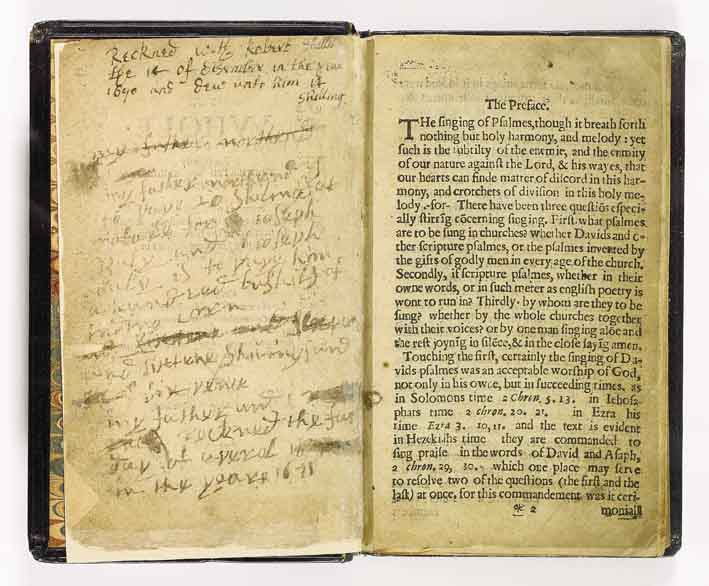 Reckned with Robert
the 14 of in the year
1690 and dew unto him 14
Shilling
my father
my father is
to Joseph
Joseph
is to pay him
a hundred bushils of
corn
and
and Shilings and
six pence
my father and I
reckened the
day of
in the yeare 1671
The Preface.
THe ſinging of Pſalmes,though it breath forth
nothing but holy harmony, and melody : yet
ſuch is the ſubtilty of the enemie, and the enmity
of our nature againſt the Lord, & his wayes, that
our hearts can finde matter of diſcord in this har-
mony, and crotchets of diviſion in this holy me-
lody .-for- There have been three queſtiōs eſpeci-
ally ſtirīg cōcerning ſinging. Firſt. what pſalmes
are to be ſung in churches? whether Davids and o-
ther ſcripture pſalmes, or the pſalmes invented by
the gifts of godly men in every age of the church.
Secondly, if ſcripture pſalmes, whether in their
owne words, or in ſuch meter as engliſh poetry is
wont to run in? Thirdly. by whom are they to be
ſung? whether by the whole churches together
with their voices? or by one man ſinging alōe and
the reſt joynīg in ſilēce,& in the cloſe ſayīg amen.
Touching the firſt, certainly the ſinging of Da-
vids pſalmes was an acceptable worſhip of God,
not only in his owne, but in ſucceeding times. as
in Solomons time 2 Chron. 5. 13. in Iehoſa-
phats time 2 chron. 20. 21. in Ezra his
time Ezra 3. 10, 11. and the text is evident
in Hezekiahs time they are commanded to
ſing praiſe in the words of David and Aſaph,
2 chron. 29, 30. which one place may ſerve
to reſolve two of the queſtions (the firſt and the
laſt) at once, for this commandement was it ceri-
* 2 moniall